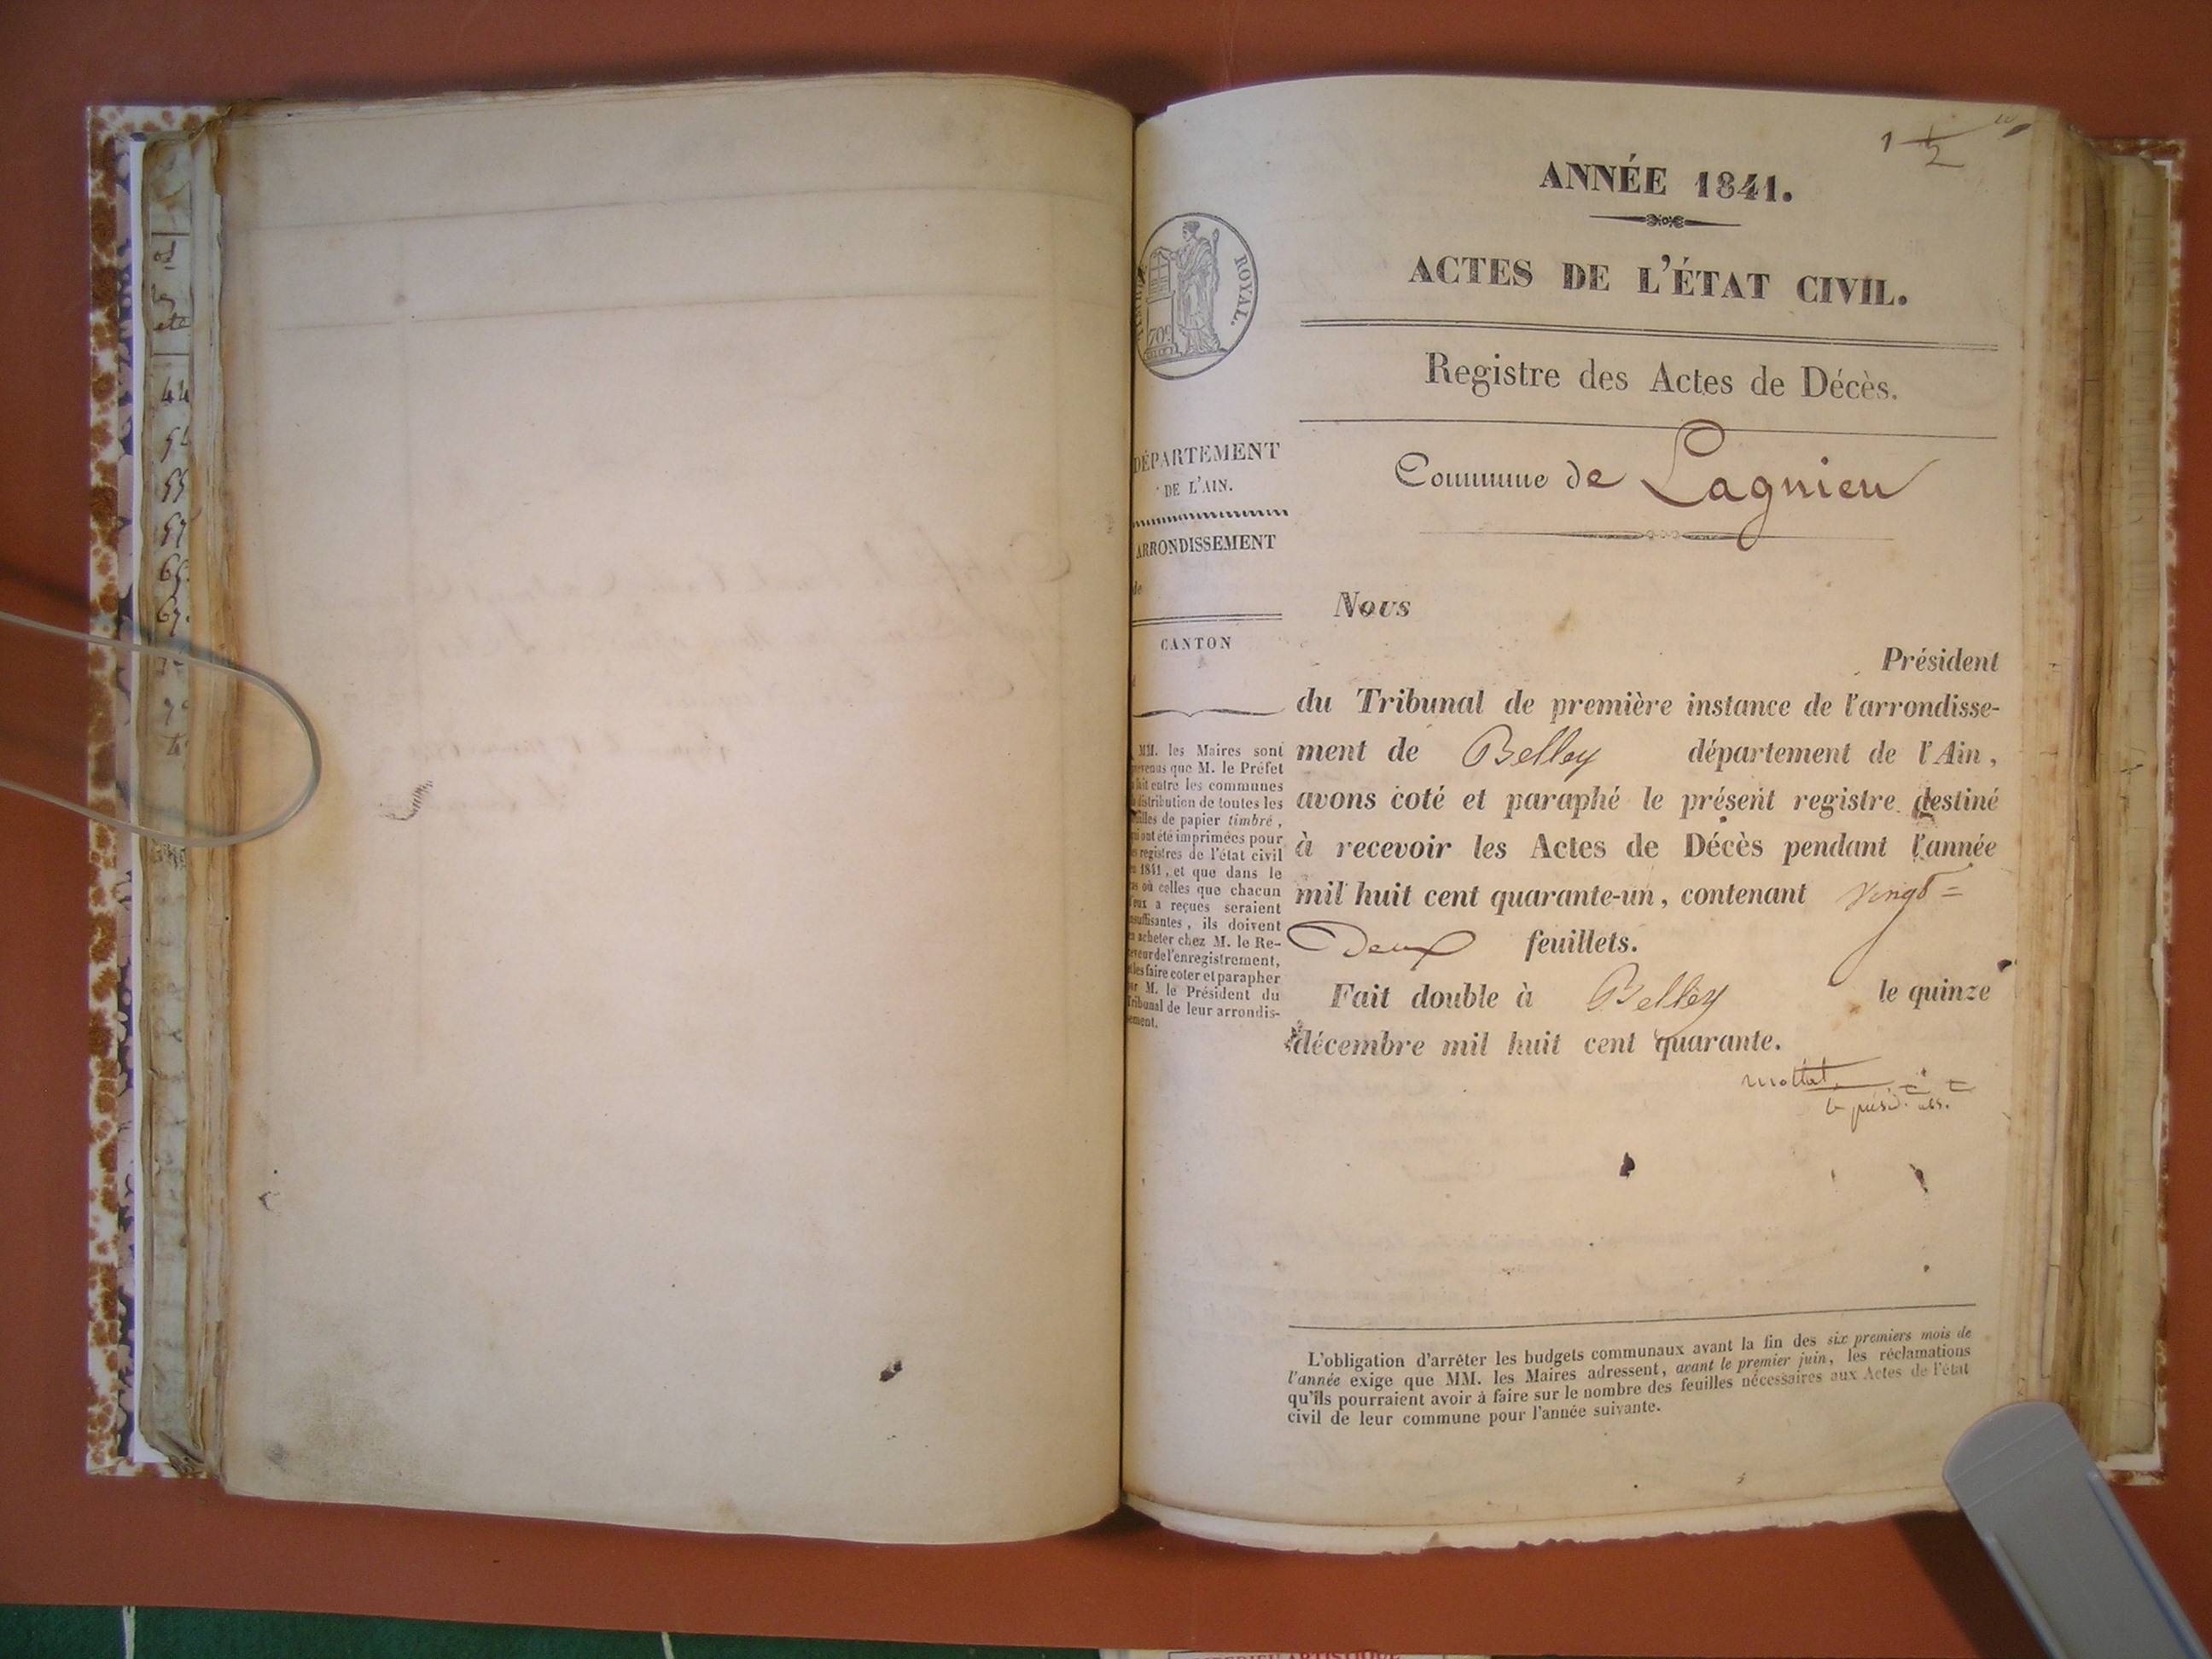 44
67.
1
2
ANNÉE 1841.
ROYAL.
ACTES DE L'ÉTAT CIVIL.
Registre des Actes de Décès.
Commune de Lagnieu
DÉPARTEMENT
DE L'AIN.
ARRONDISSEMENT
de
CANTON
MM. les Maires sont
que M. le Préfet
fait entre les communes
distribution de toutes les
de papier timbré,
ont été imprimées pour
registres de l'état civil
1841, et que dans le
où celles que chacun
a reçues seraient
, ils doivent
acheter chez M. le Re-
de l'enregistrement,
les faire coter et parapher
M. le Président du
Tribunal de leur arrondis-
sement.
Nous
Président
du Tribunal de première instance de l'arrondisse-
ment de Belley département de l'Ain,
avons coté et paraphé le présent registre destiné
à recevoir les Actes de Décès pendant l'année
mil huit cent quarante-un, contenant vingt=
Deux feuillets.
Fait double à Belley le quinze
décembre mil huit cent quarante.
L'obligation d'arrêter les budgets communaux avant la fin des six premiers mois de
l'année exige que MM. les Maires adressent, avant le premier juin, les réclamations
qu'ils pourraient avoir à faire sur le nombre des feuilles nécessaires aux Actes de l'état
civil de leur commune pour l'année suivante.